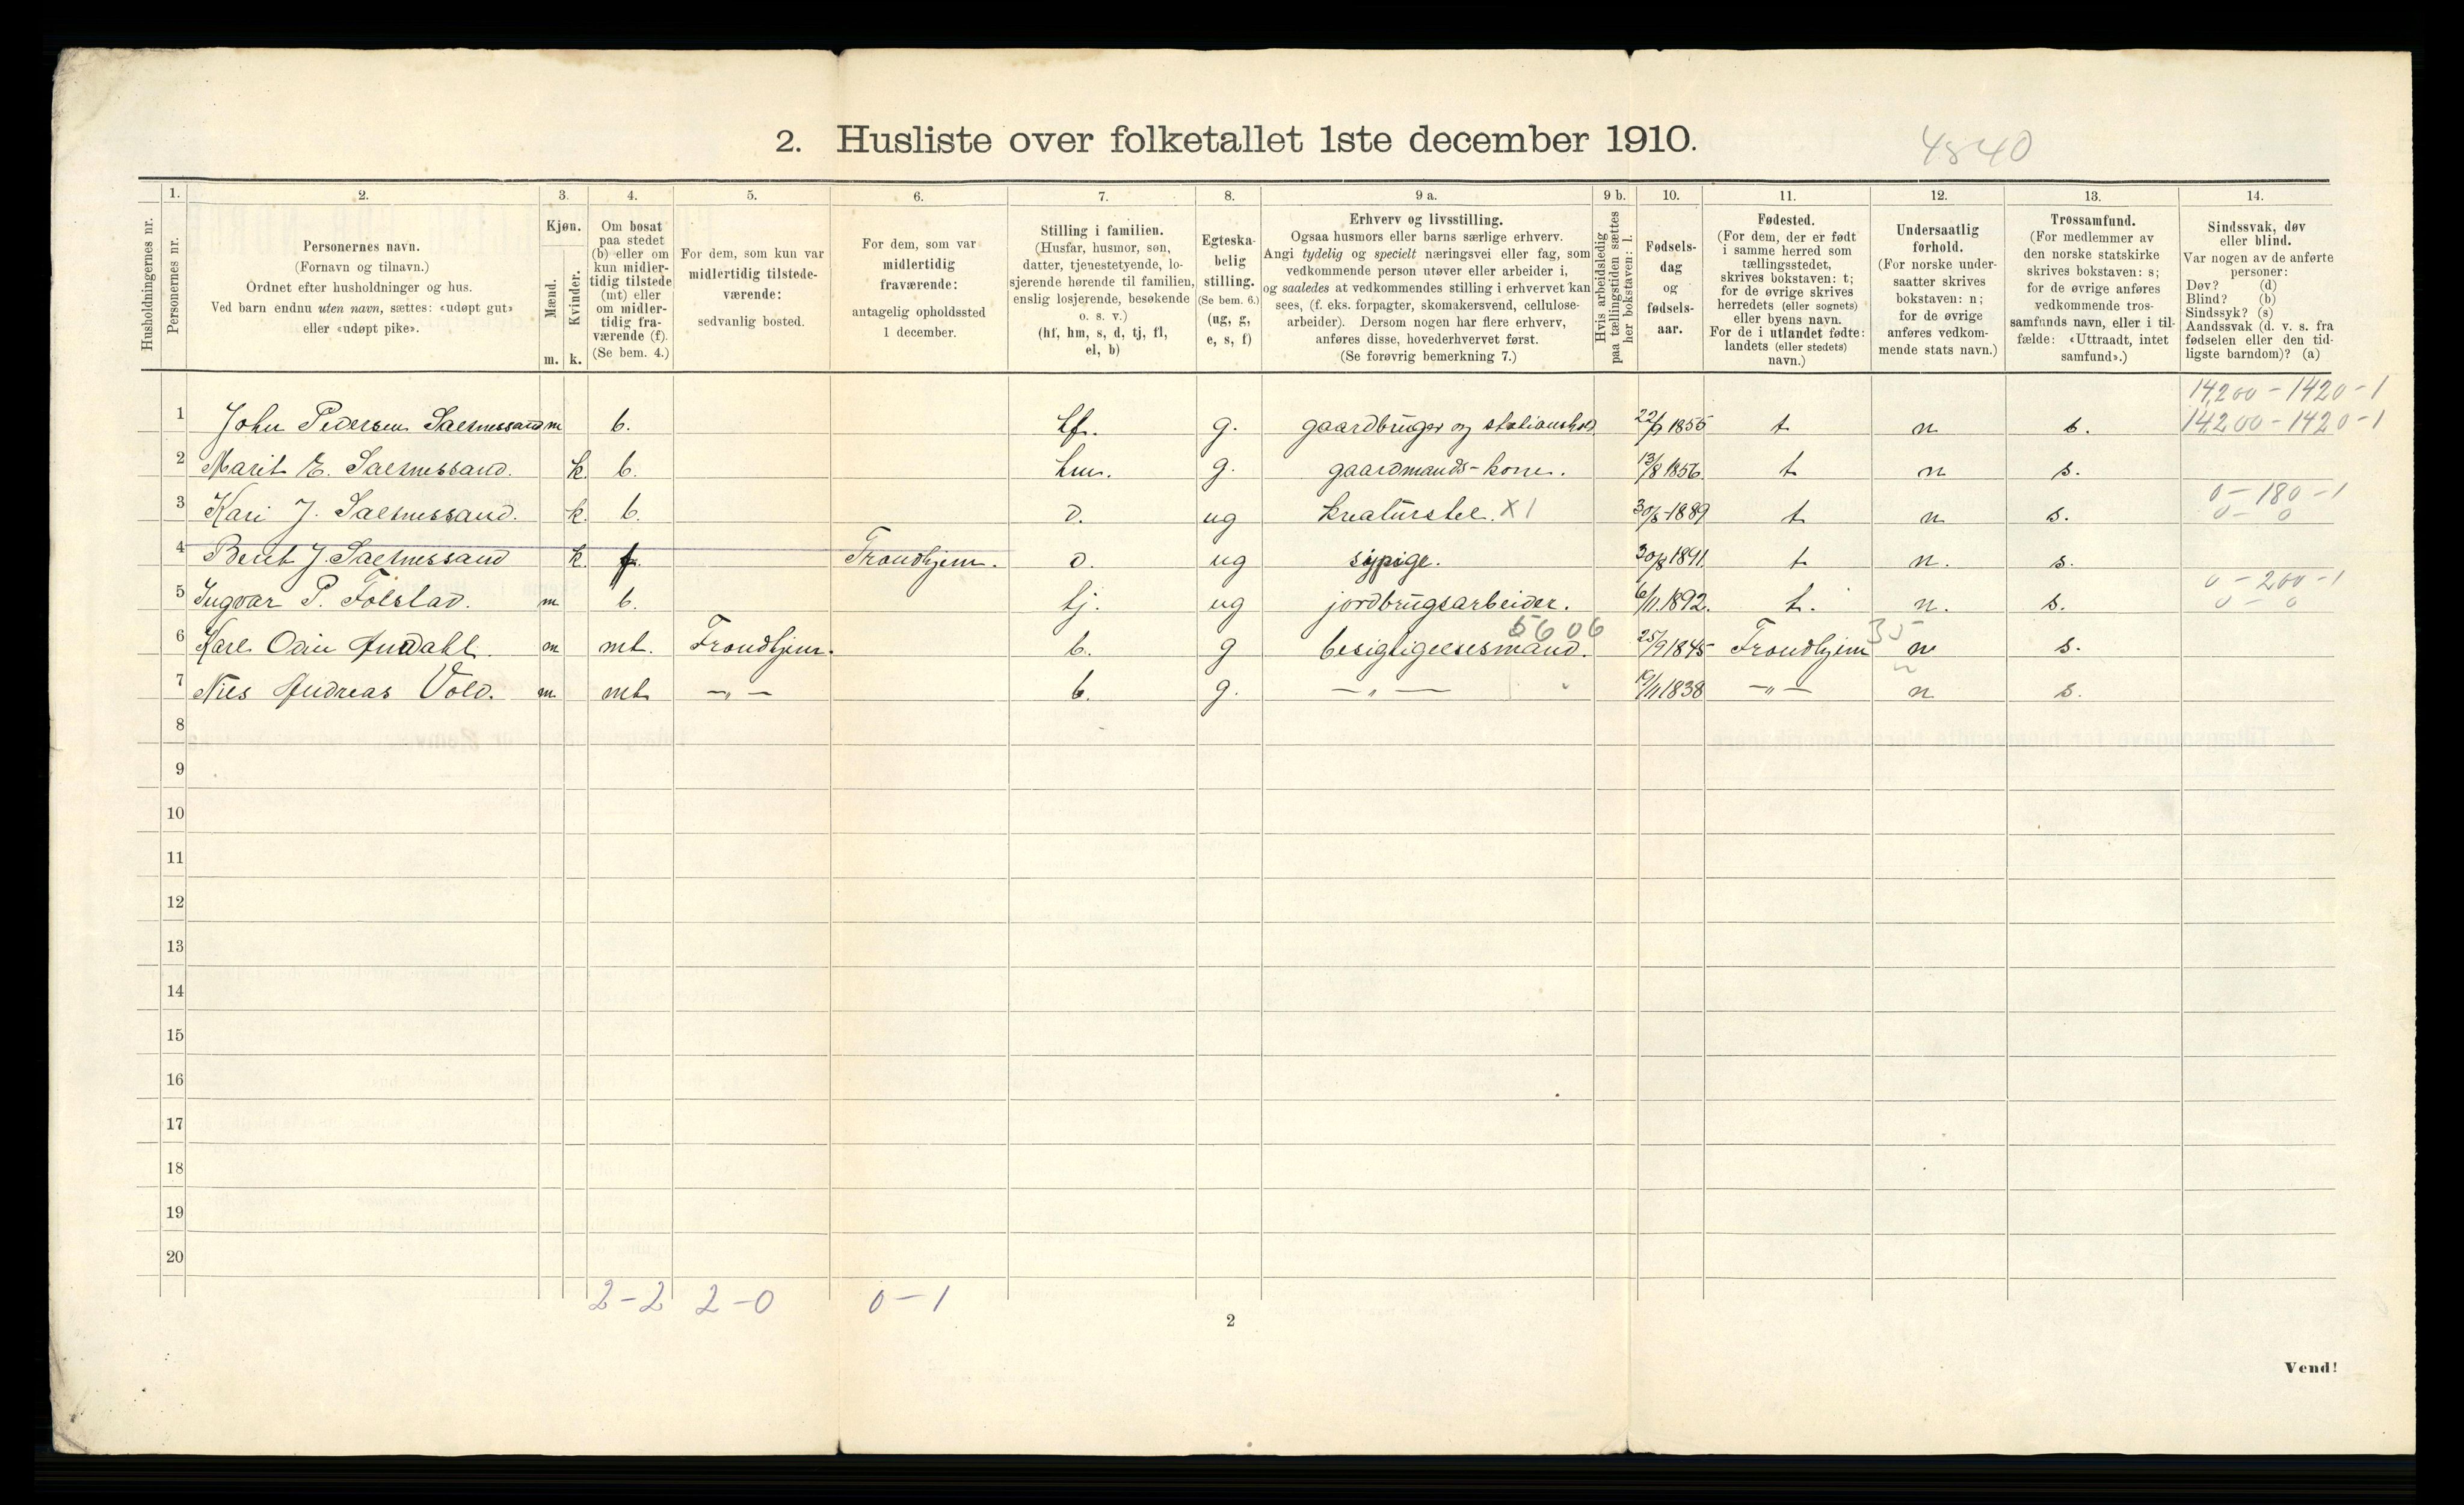 2. Husliste over folketallet 1ste december 1910.
4840
1. 2. 3. 4. 5. 6. 7. 8. 9 a. 9 b. 10. 11. 12. 13. 14.
Husholdningernes nr.
Personernes nr.
Personernes navn.
(Fornavn og tilnavn.)
Ordnet efter husholdninger og hus.
Ved barn endnu uten navn, sættes: «udøpt gut»
eller «udøpt pike».
Kjøn.
Mænd.
Kvinder.
m. k.
Om bosat
paa stedet
(b) eller om
kun midler-
tidig tilstede
(mt) eller
om midler-
tidig fra-
værende (f).
(Se bem. 4.)
For dem, som kun var
midlertidig tilstede-
værende:
sedvanlig bosted.
For dem, som var
midlertidig
fraværende:
antagelig opholdssted
1 december.
Stilling i familien.
(Husfar, husmor, søn,
datter, tjenestetyende, lo-
sjerende hørende til familien,
enslig losjerende, besøkende
o. s. v.)
(hf, hm, s, d, tj, fl,
el, b)
Egteska-
belig
stilling.
(Se bem. 6.)
(ug, g,
e, s, f)
Erhverv og livsstilling.
Ogsaa husmors eller barns særlige erhverv.
Angi tydelig og specielt næringsvei eller fag, som
vedkommende person utøver eller arbeider i,
og saaledes at vedkommendes stilling i erhvervet kan
sees, (f. eks. forpagter, skomakersvend, cellulose-
arbeider). Dersom nogen har flere erhverv,
anføres disse, hovederhvervet først.
(Se forøvrig bemerkning 7.)
Hvis arbeidsledig
paa tællingstiden sættes
her bokstaven: l.
Fødsels-
dag
og
fødsels-
aar.
Fødested.
(For dem, der er født
i samme herred som
tællingsstedet,
skrives bokstaven: t;
for de øvrige skrives
herredets (eller sognets)
eller byens navn.
For de i utlandet fødte:
landets (eller stedets)
navn.)
Undersaatlig
forhold.
(For norske under-
saatter skrives
bokstaven: n;
for de øvrige
anføres vedkom-
mende stats navn.)
Trossamfund.
(For medlemmer av
den norske statskirke
skrives bokstaven: s;
for de øvrige anføres
vedkommende tros-
samfunds navn, eller i til-
fælde: «Uttraadt, intet
samfund».)
Sindssvak, døv
eller blind.
Var nogen av de anførte
personer:
Døv? (d)
Blind? (b)
Sindssyk? (s)
Aandssvak (d. v. s. fra
fødselen eller den tid-
ligste barndom)? (a)
14,200 - 1420 - 1
1 John Pedersen Salthessand m b. hf. g. gaardbruger og stationshol. 1855 t n s. 14,200 - 1420 - 1
2 Marit E. Salthessand. k. b. hm. g. gaardmands-kone. 13/8 1856 t n s.
0 - 180 - 1
3 Kari J. Salthessand. k. b. d. ug kreaturstel. X 1 1889 t n s. 0 - 0
4 Berit J. Salthessand k. f. Trondhjem. d. ug sypige. 30/8 1891. t n. s.
0 - 200 - 1
5 Ingvar P. Folstad. m b. tj. ug jordbrugsarbeider. 6/11.1892. t. n. s. 0 - 0
5606 35
6 Karl Andahl. m mt. Trondhjem. b. g besigtigelsesmand. 25/9 1845 Trondhjem n s.
7 Nils Andreas Vold. m. mt —„— b. g. —„— 1838 —„— n s.
8
9
10
11
12
13
14
15
16
17
18
19
20
2-2 2-0 0-1
2
Vend!